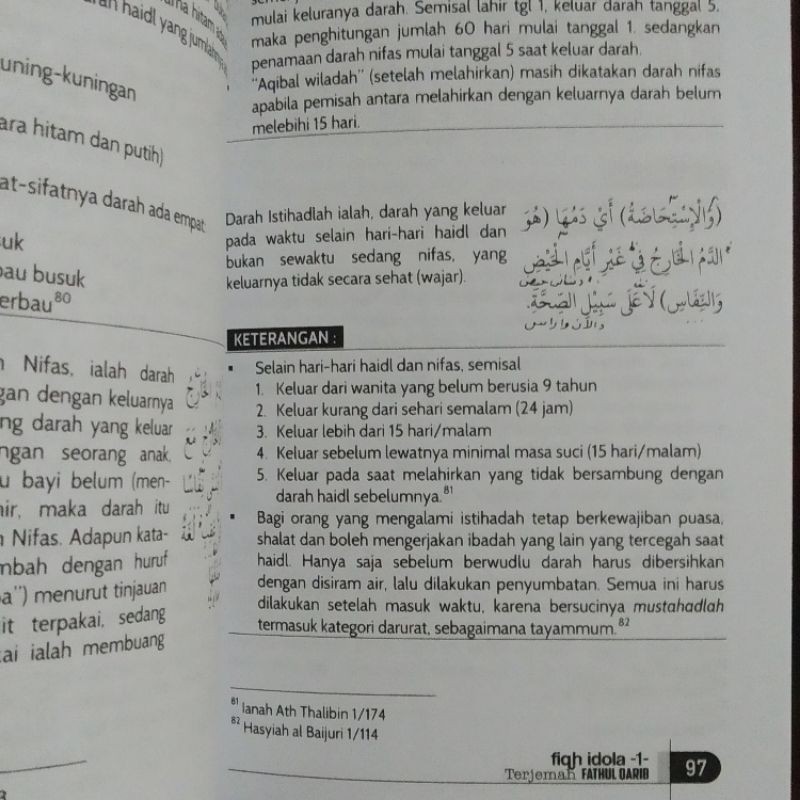 haidl yang jumlahnya
uning-kuningan
ara hitam dan putih)
at-sifatnya darah ada empat
suk
bau busuk
erbau⁸⁰
Nifas, ialah darah
gan dengan keluarnya
ng darah yang keluar
ngan seorang anak.
u bayi belum (men-
ir, maka darah itu
Nifas. Adapun kata-
mbah dengan huruf
a") menurut tinjauan
it terpakai, sedang
kai ialah membuang
mulai keluranya darah. Semisal lahir tgl 1, keluar darah tanggal 5,
maka penghitungan jumlah 60 hari mulai tanggal 1. sedangkan
penamaan darah nifas mulai tanggal 5 saat keluar darah.
"Aqibal wiladah" (setelah melahirkan) masih dikatakan darah nifas
apabila pemisah antara melahirkan dengan keluarnya darah belum
melebihi 15 hari.
Darah Istihadlah ialah, darah yang keluar
pada waktu selain hari-hari haidl dan
bukan sewaktu sedang nifas, yang
keluarnya tidak secara sehat (wajar).
(وَالْإِسْتِحَاضَةُ) أَيْ دَمُهَا (هُوَ
الدَّمُ الْخَارِجُ فِيْ غَيْرِ أَيَّامِ الْحَيْضِ
وَالنِّفَاسِ) لَاعَلَى سَبِيْلِ الصِّحَّةِ.
KETERANGAN :
▪ Selain hari-hari haidl dan nifas, semisal
1. Keluar dari wanita yang belum berusia 9 tahun
2. Keluar kurang dari sehari semalam (24 jam)
3. Keluar lebih dari 15 hari/malam
4. Keluar sebelum lewatnya minimal masa suci (15 hari/malam)
5. Keluar pada saat melahirkan yang tidak bersambung dengan
darah haidl sebelumnya.⁸¹
▪ Bagi orang yang mengalami istihadah tetap berkewajiban puasa,
shalat dan boleh mengerjakan ibadah yang lain yang tercegah saat
haidl. Hanya saja sebelum berwudlu darah harus dibersihkan
dengan disiram air, lalu dilakukan penyumbatan. Semua ini harus
dilakukan setelah masuk waktu, karena bersucinya mustahadlah
termasuk kategori darurat, sebagaimana tayammum.⁸²
⁸¹ Ianah Ath Thalibin 1/174
⁸² Hasyiah al Baijuri 1/114
fiqh idola -1-
Terjemah FATHUL QARIB
97